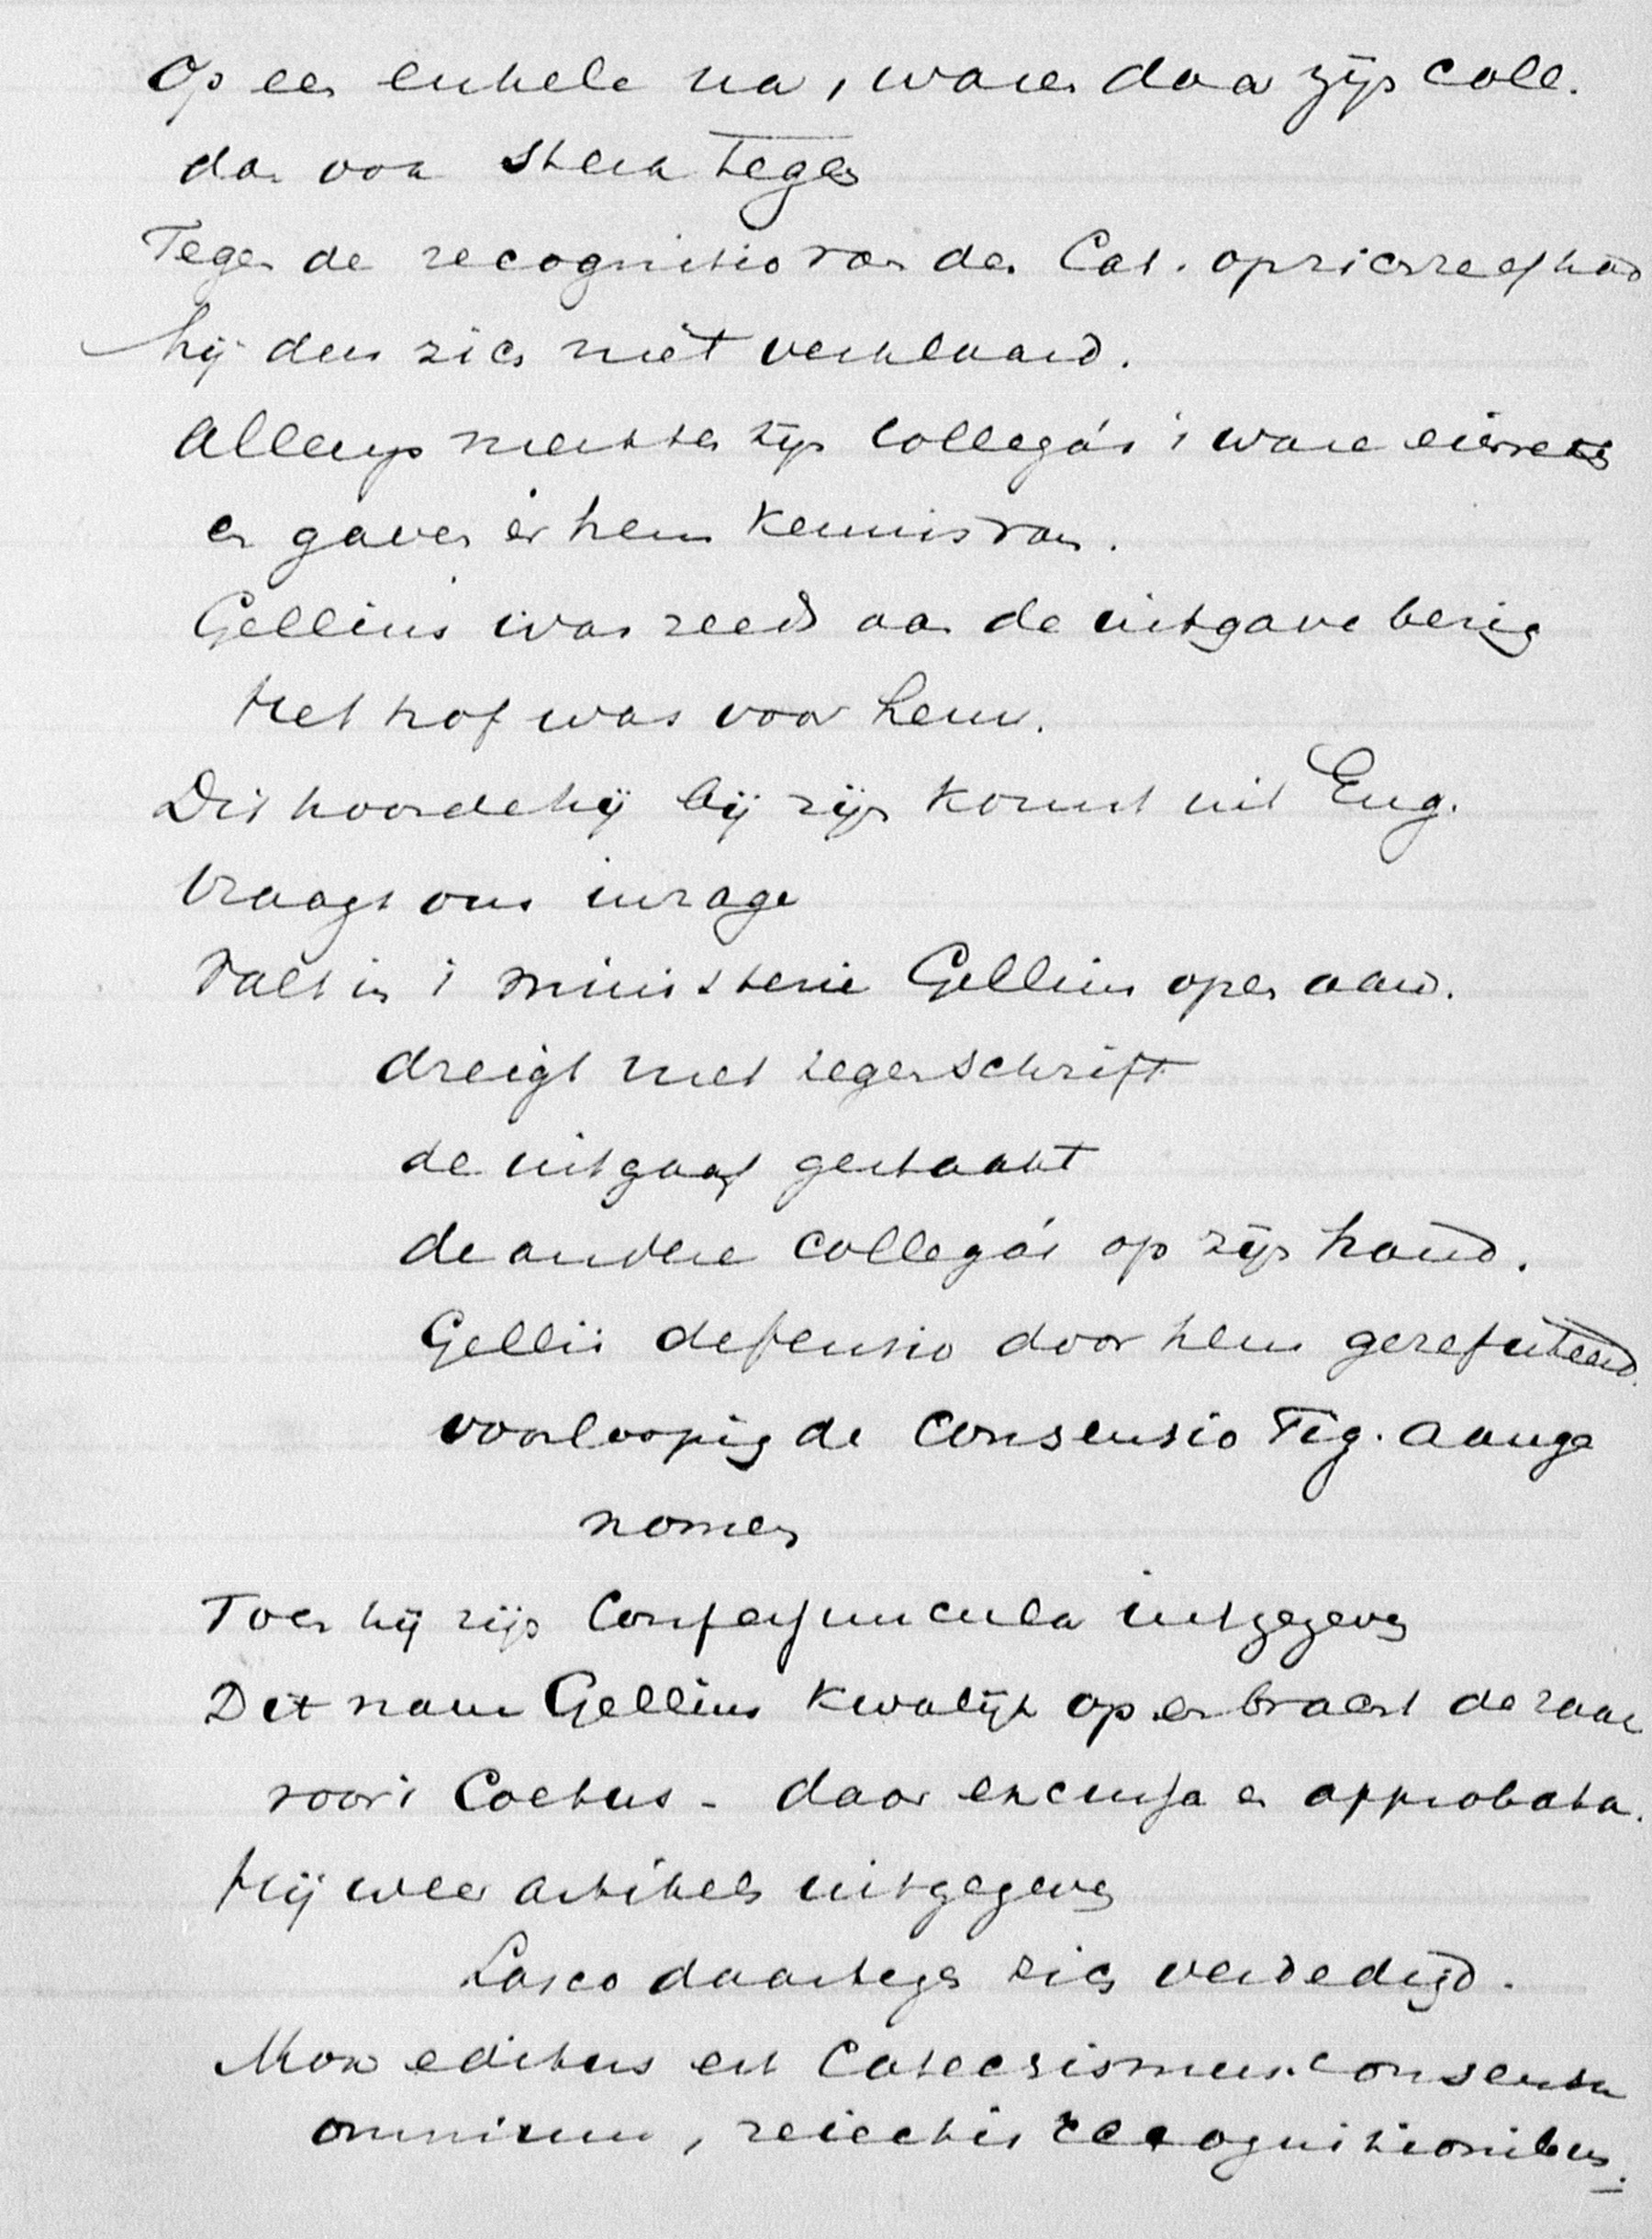 Op een enkele na, waren daar zijn coll.
dan ook sterk tegen
Tegen de recognitio van den Cat. op zich zelf had
hij dus zich niet verklaard.
Alleen meesten zijn collega's i ware
en gaven er hem kennis van.
Gellius was reeds aan de uitgave bezig
Het hof was voor hem.
Dit hoorde hij bij zijn komst uit Eng.
Vraagt ons inzage
Valt in 't ministerie Gellius open aan.
dreigt met tegenschrift
de uitgaaf gestaakt
de andere collega's op zijn hand.
Gellii defensio door hem gerefuteerd.
voorloopig de Consensio Tig. aange
nomen
Toen hij zijn Confessiuncula uitgegeven
Dit nam Gellius kwalijk op en bracht de zaak
voor 't Coetus - daar excussa en approbata.
Hij weer artikels uitgegeven
Lasco daartegen zich verdedigd.
Mox editus est Catechismus consensu
omnium, reiectis recognitionibus.